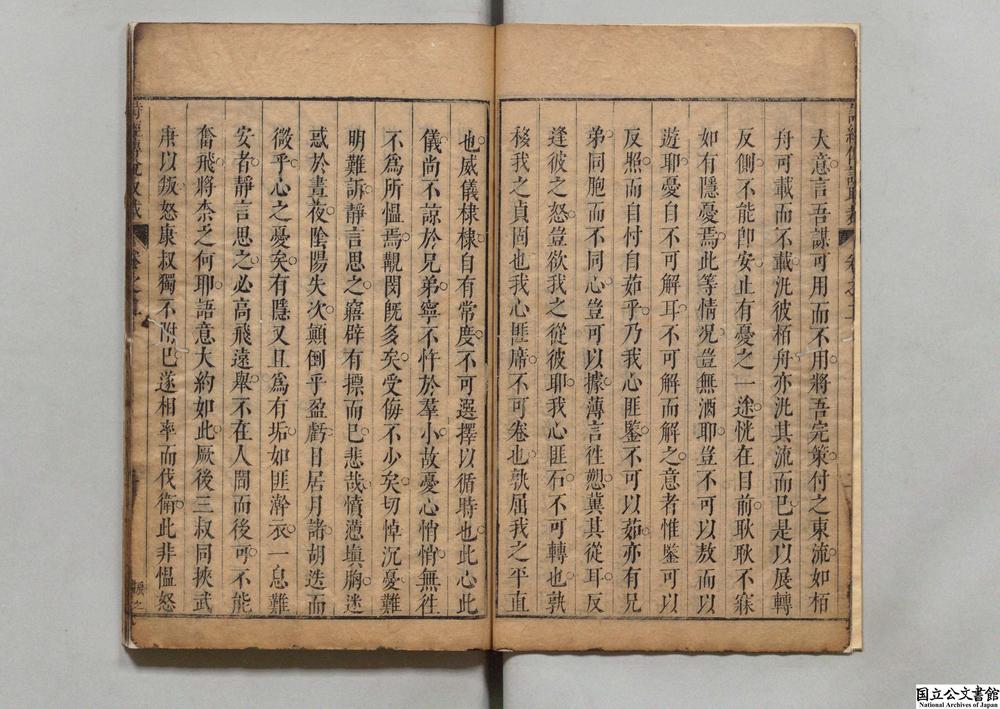 大意言吾謀可用而不用將吾完策付之東流如栢
舟可載而不載汎彼栢舟亦汎其流而已是以展轉
反側不能卽安止有憂之一途恍在目前耿耿不寐
如有隱憂焉此等情况豈無酒耶豈不可以敖而以
遊耶憂自不可解耳不可解而解之意者惟鑒可以
反照而自忖自茹乎乃我心匪鑒不可以茹亦有兄
弟同胞而不同心豈可以據薄言徃愬冀其從耳反
逢彼之怒豈欲我之從彼耶我心匪石不可轉也孰
移我之貞固也我心匪席不可卷也孰屈我之平直
也威儀棣棣自有常度不可選擇以循時也此心此
儀尚不諒於兄弟寧不忤於羣小故憂心悄悄無徃
不爲所慍焉覯閔旣多矣受侮不少矣切悼沉憂難
明難訴靜言思之寤辟有摽而已悲哉憤懣塡胸迷
惑於晝夜陰陽失次顛倒乎盈虧日居月諸胡迭而
微乎心之憂矣有隱又且爲有垢如匪澣衣一息難
安者靜言思之必高飛遠舉不在人間而後可不能
奮飛將柰之何耶語意大約如此厥後三叔同挾武
庚以叛怒康叔獨不附已遂相率而伐衛此非慍怒
国立公文書館
National Archives of Japan